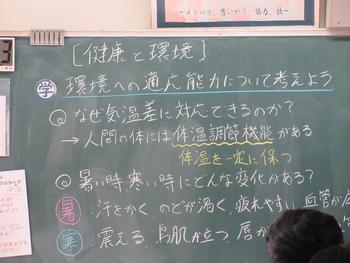 ～メリハリ、思いやり、協力、技～
[健康と環境]
学 環境への適応能力について考えよう
◎なぜ気温差に対応できるのか?
→人間の体には体温調節機能がある
体温を一定に保つ
◎暑い時、寒い時にどんな変化がある?
暑:汗をかく、のどが渇く、疲れやすい、血管が
寒:震える、鳥肌が立つ、唇が